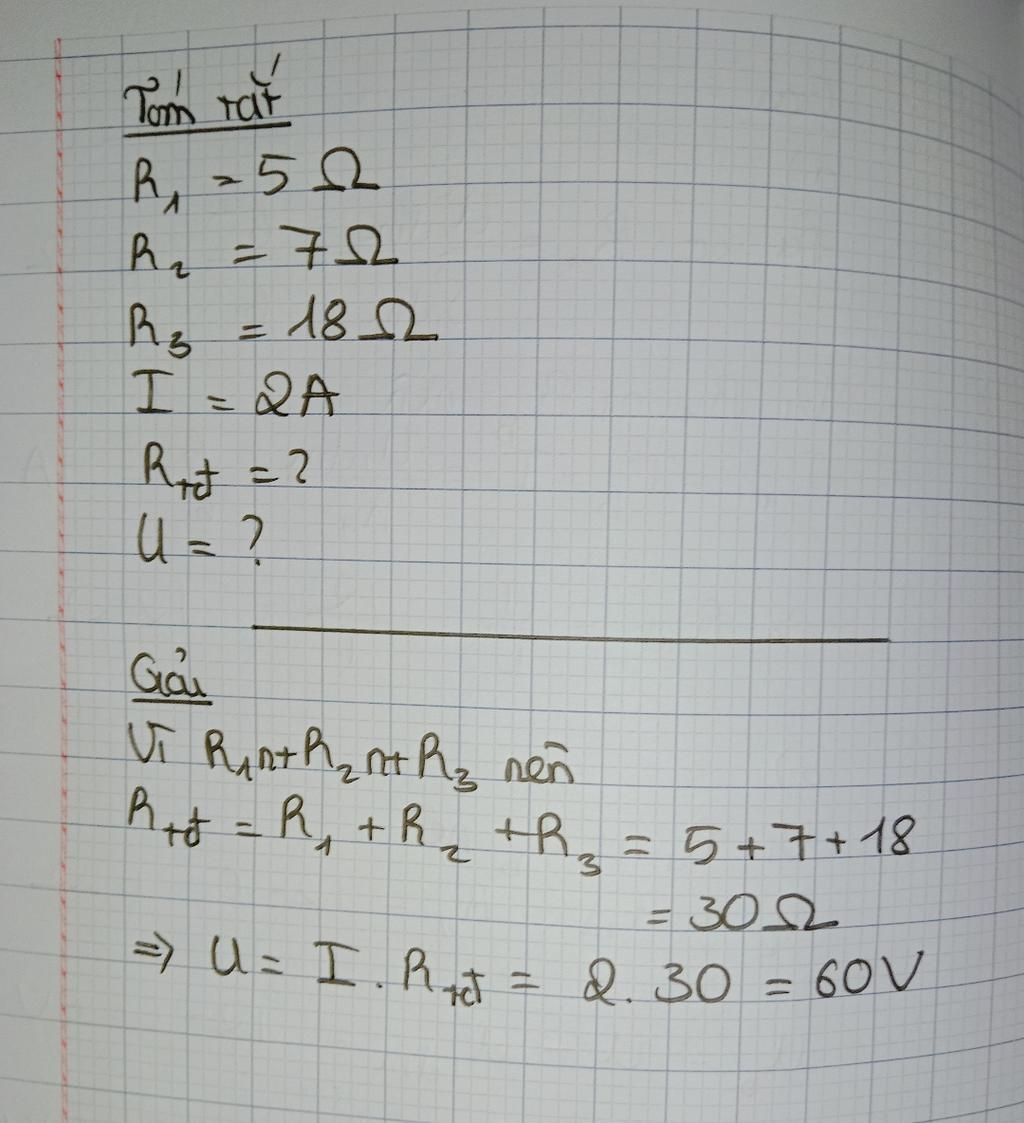 Tóm tắt
R₁ = 5 Ω
R₂ = 7 Ω
R₃ = 18 Ω
I = 2A
Rtđ = ?
U = ?
Giải
Vì R₁ nt R₂ nt R₃ nên
Rtđ = R₁ + R₂ + R₃ = 5 + 7 + 18
= 30 Ω
⇒ U = I . Rtđ = 2. 30 = 60V